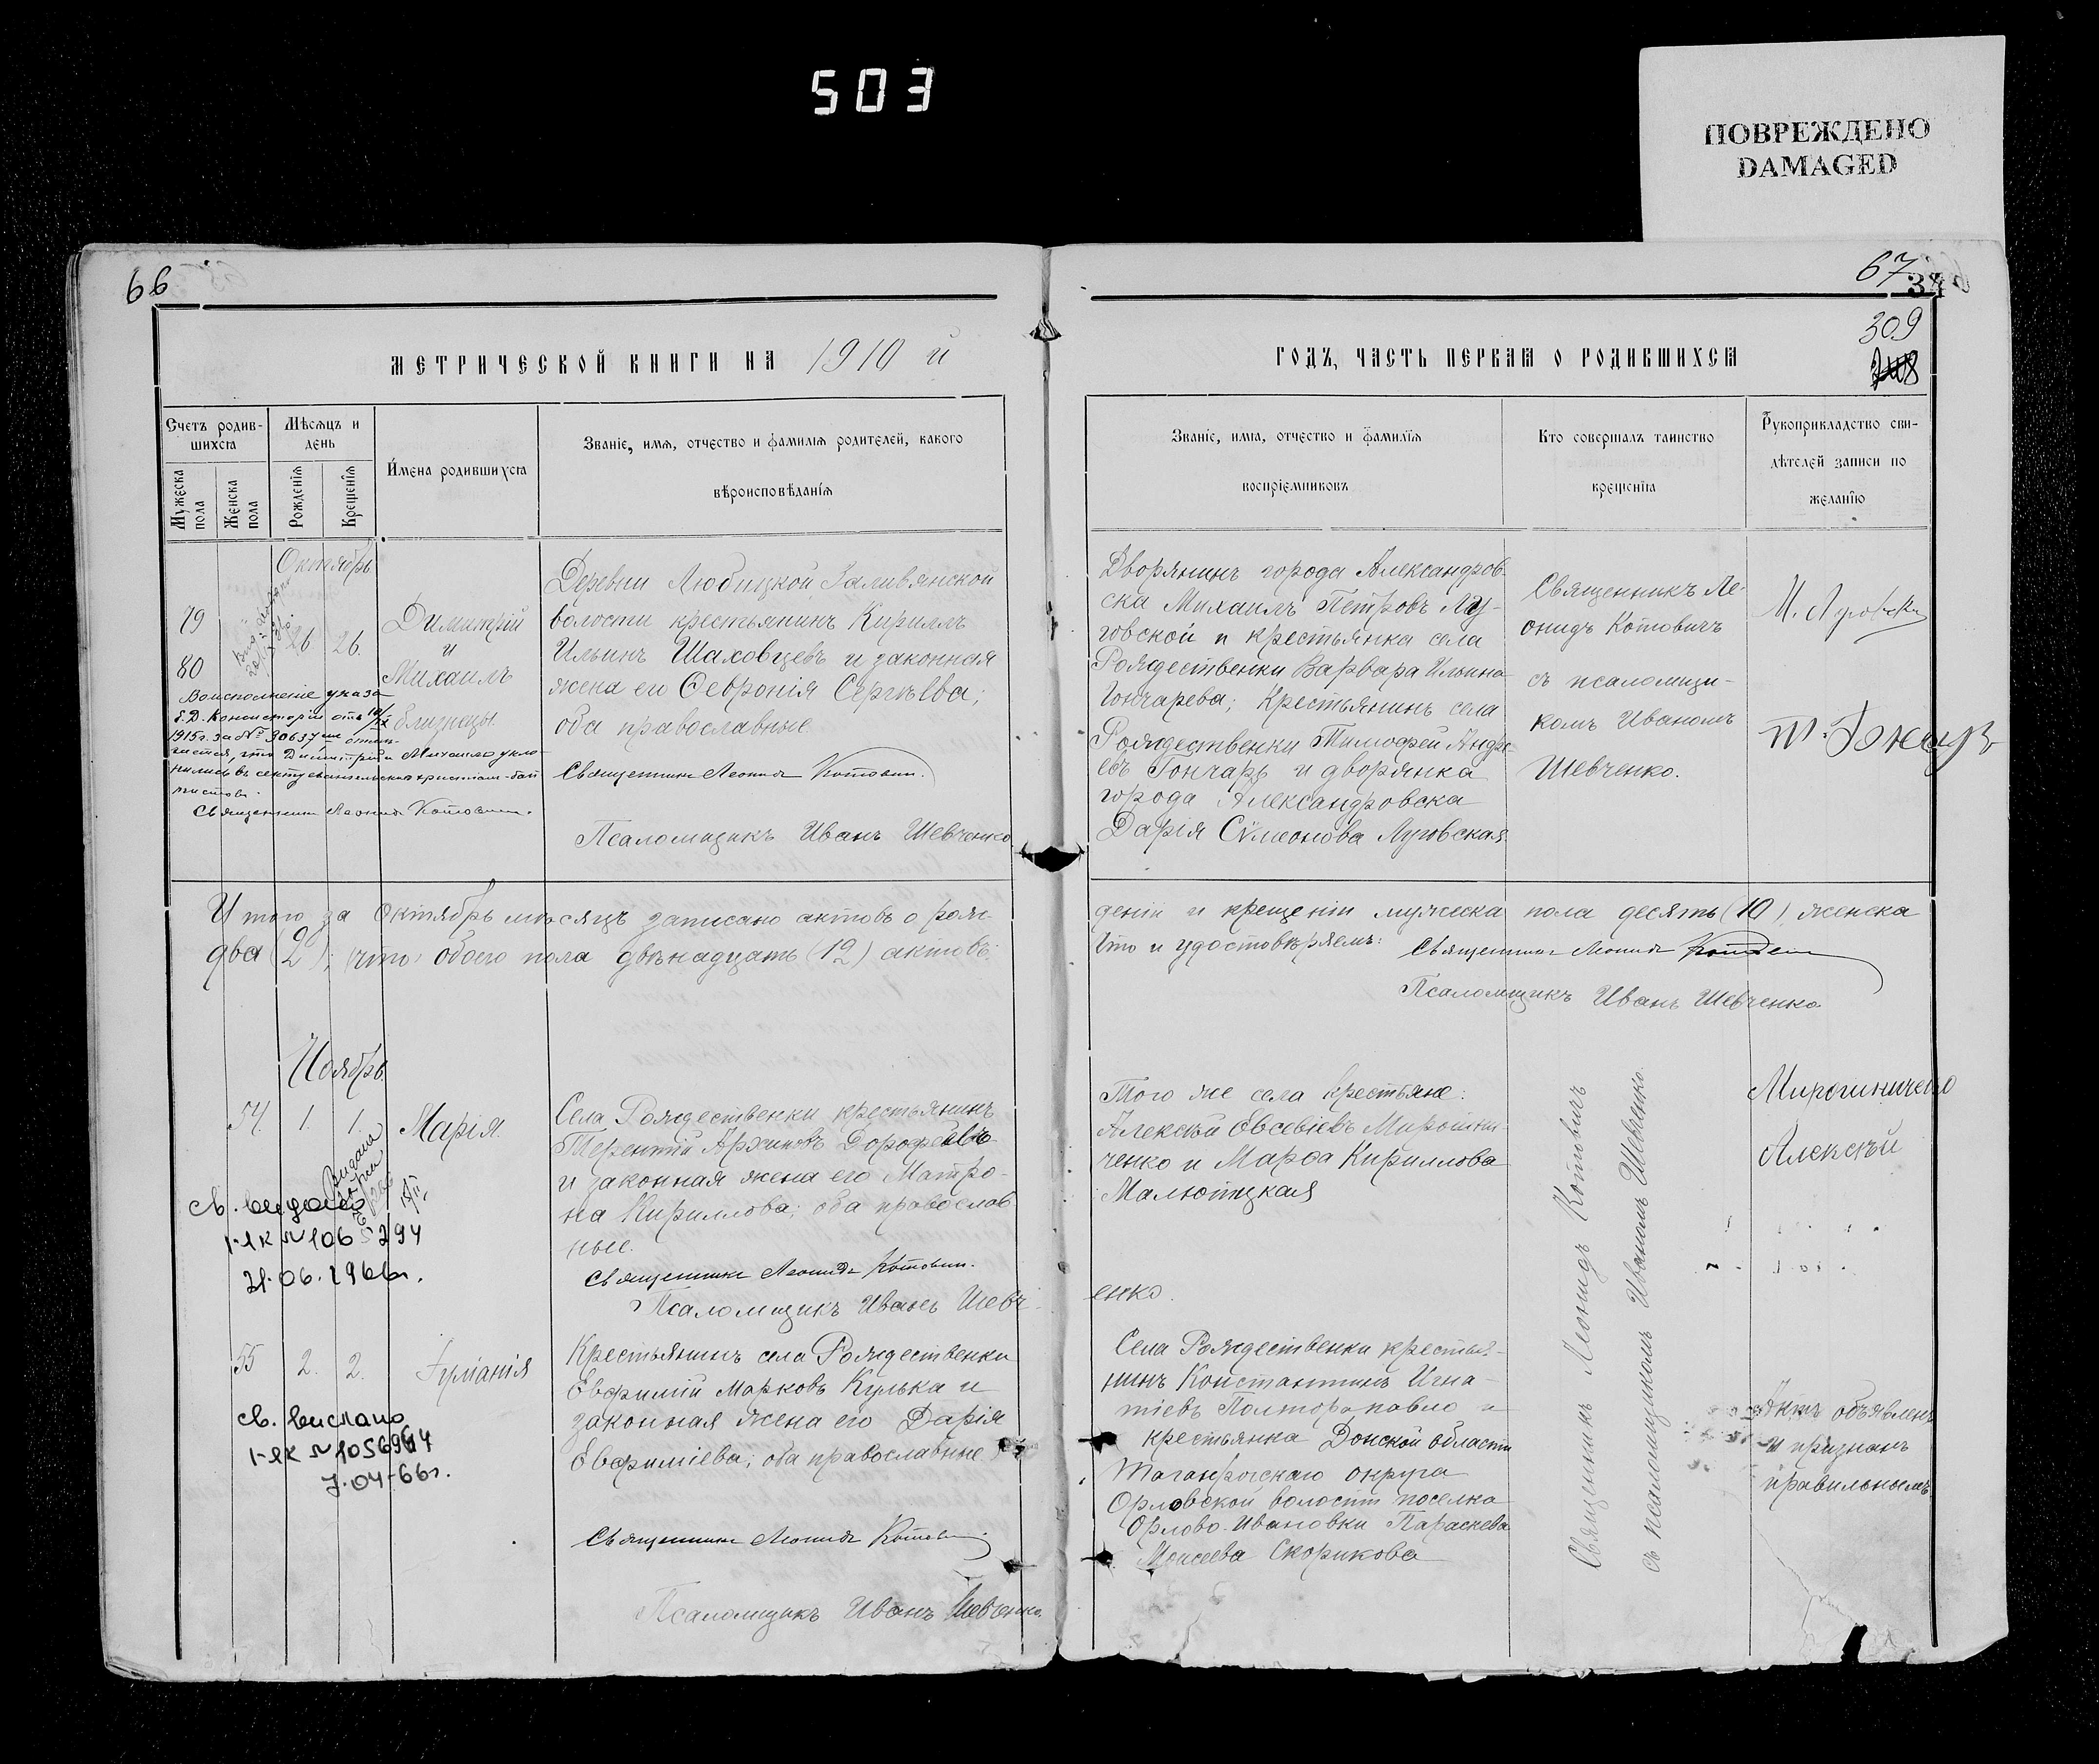 503
ПОВРЕЖДЕНО
DAMAGED
66
МЕТРИЧЕСКОЙ КНИГИ НА 1910 й
Счетъ родив-
шихся
Мѣсяцъ и
день
Мужеска
пола
Женска
пола
Рожденія
Крещенія
Имена родившихся
Званіе, имя, отчество и фамилія родителей, какого
вѣроисповѣданія
Октябрь
79
80
26
26.
Димитрій
и
Михаилъ
близнецы.
Воисполненіе указа
Е. Д. Консисторіи отъ
1915 г. за № 30637
что Димитрій и Михаилъ укло-
нились въ секту евангельскихъ христіан-бап
тистовъ.
Священникъ Леонидъ Котовичъ.
Деревни Любицкой Заливянской
волости крестьянинъ Кириллъ
Ильинъ Шаховцевъ и законная
жена его Ѳевронія Сергѣева;
оба православные
Священникъ Леонидъ Котовичъ.
Псаломщикъ Иванъ Шевченко
Итого за Октябрь мѣсяцъ записано актовъ о рож-
два (2); что обоего пола двѣнадцать (12) актовъ:
Ноябрь.
54
1.
1.
Марія.
Видана
св. видано
І-ЯК № 1065294
21.06.1966г.
Села Рождественки крестьянинъ
Терентій Архиповъ Дорофеевъ
и законная жена его Матро-
на Кириллова; оба православ
ные.
Священникъ Леонидъ Котовичъ.
Псаломщикъ Иванъ Шевч-
55
2.
2.
Іуліанія
св. вислано
І-ЯК №
7.04-66г.
Крестьянинъ села Рождественки
Евфимій Марковъ Кулька и
законная жена его Дарія
Евфиміева; оба православные
Священникъ Леонидъ Котович.
Псаломщикъ Иванъ Шевченко.
67
34
309
ГОДЪ, ЧАСТЬ ПЕРВАЯ О РОДИВШИХСЯ
Званіе, имя, отчество и фамилія
воспріемниковъ
Кто совершалъ таинство
крещенія
Рукоприкладство сви-
дѣтелей записи по
желанію
Дворянинъ города Александров-
ска Михаилъ Петровъ Лу-
говской и крестьянка села
Рождественки Варвара Ильина
Гончарева; Крестьянинъ села
Рождественки Тимоѳей Андре-
евъ Гончаръ и дворянка
города Александровска
Дарія Сѵмеонова Луговская
Священникъ Ле-
онидъ Котовичъ
съ псаломщи-
комъ Иваномъ
Шевченко.
деніи и крещеніи мужеска пола десять (10), женска
что и удостовѣряемъ: Священникъ Леонидъ Котович
Псаломщикъ Иванъ Шевченко
Того же села крестьяне:
Алексѣй Евсевіевъ Мирошни-
ченко и Марѳа Кириллова
Малютицкая
енко.
Мирошниченко
Алексѣй
Села Рождественки крестья-
нинъ Константинъ Игна-
тіевъ Полторапавло и
крестьянка Донской области
Таганрогскаго округа
Орловской волости поселка
Орлово-Ивановки Параскева
Моисеева Скорикова
Священникъ Леонидъ Котовичъ
съ псаломщикомъ Иваномъ Шевченко.
Актъ объявленъ
и признанъ
правильнымъ